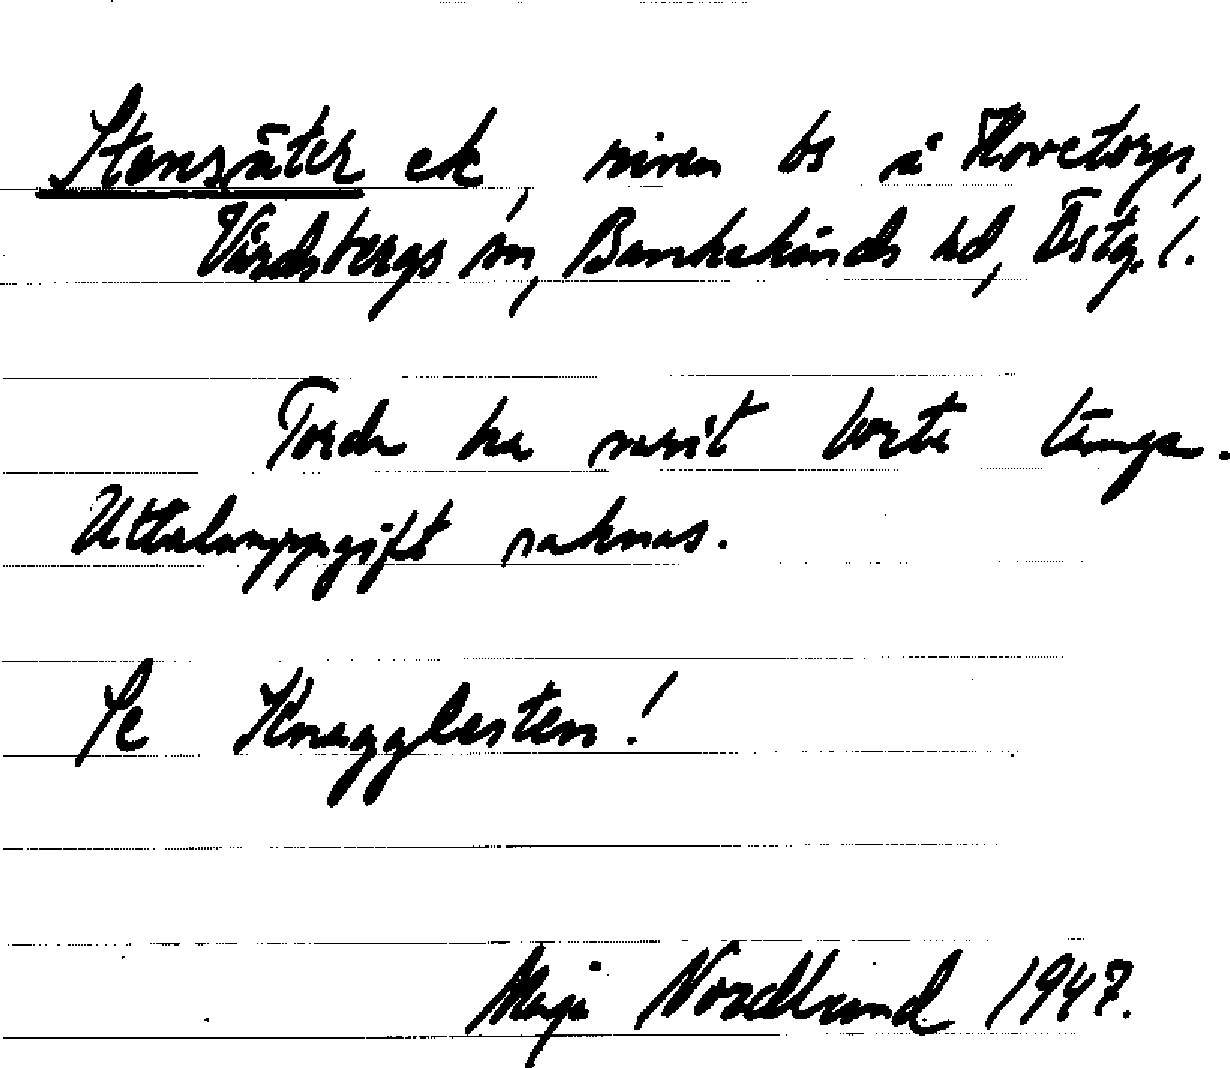 Stensäter ek, riven bs å Hovetorp,
Vårdsbergs sn, Bankekinds hd, Östg. l.
Torde ha varit borta länge.
Uttalsuppgift saknas.
Se Knagglesten!
Maja Nordlund 1947.